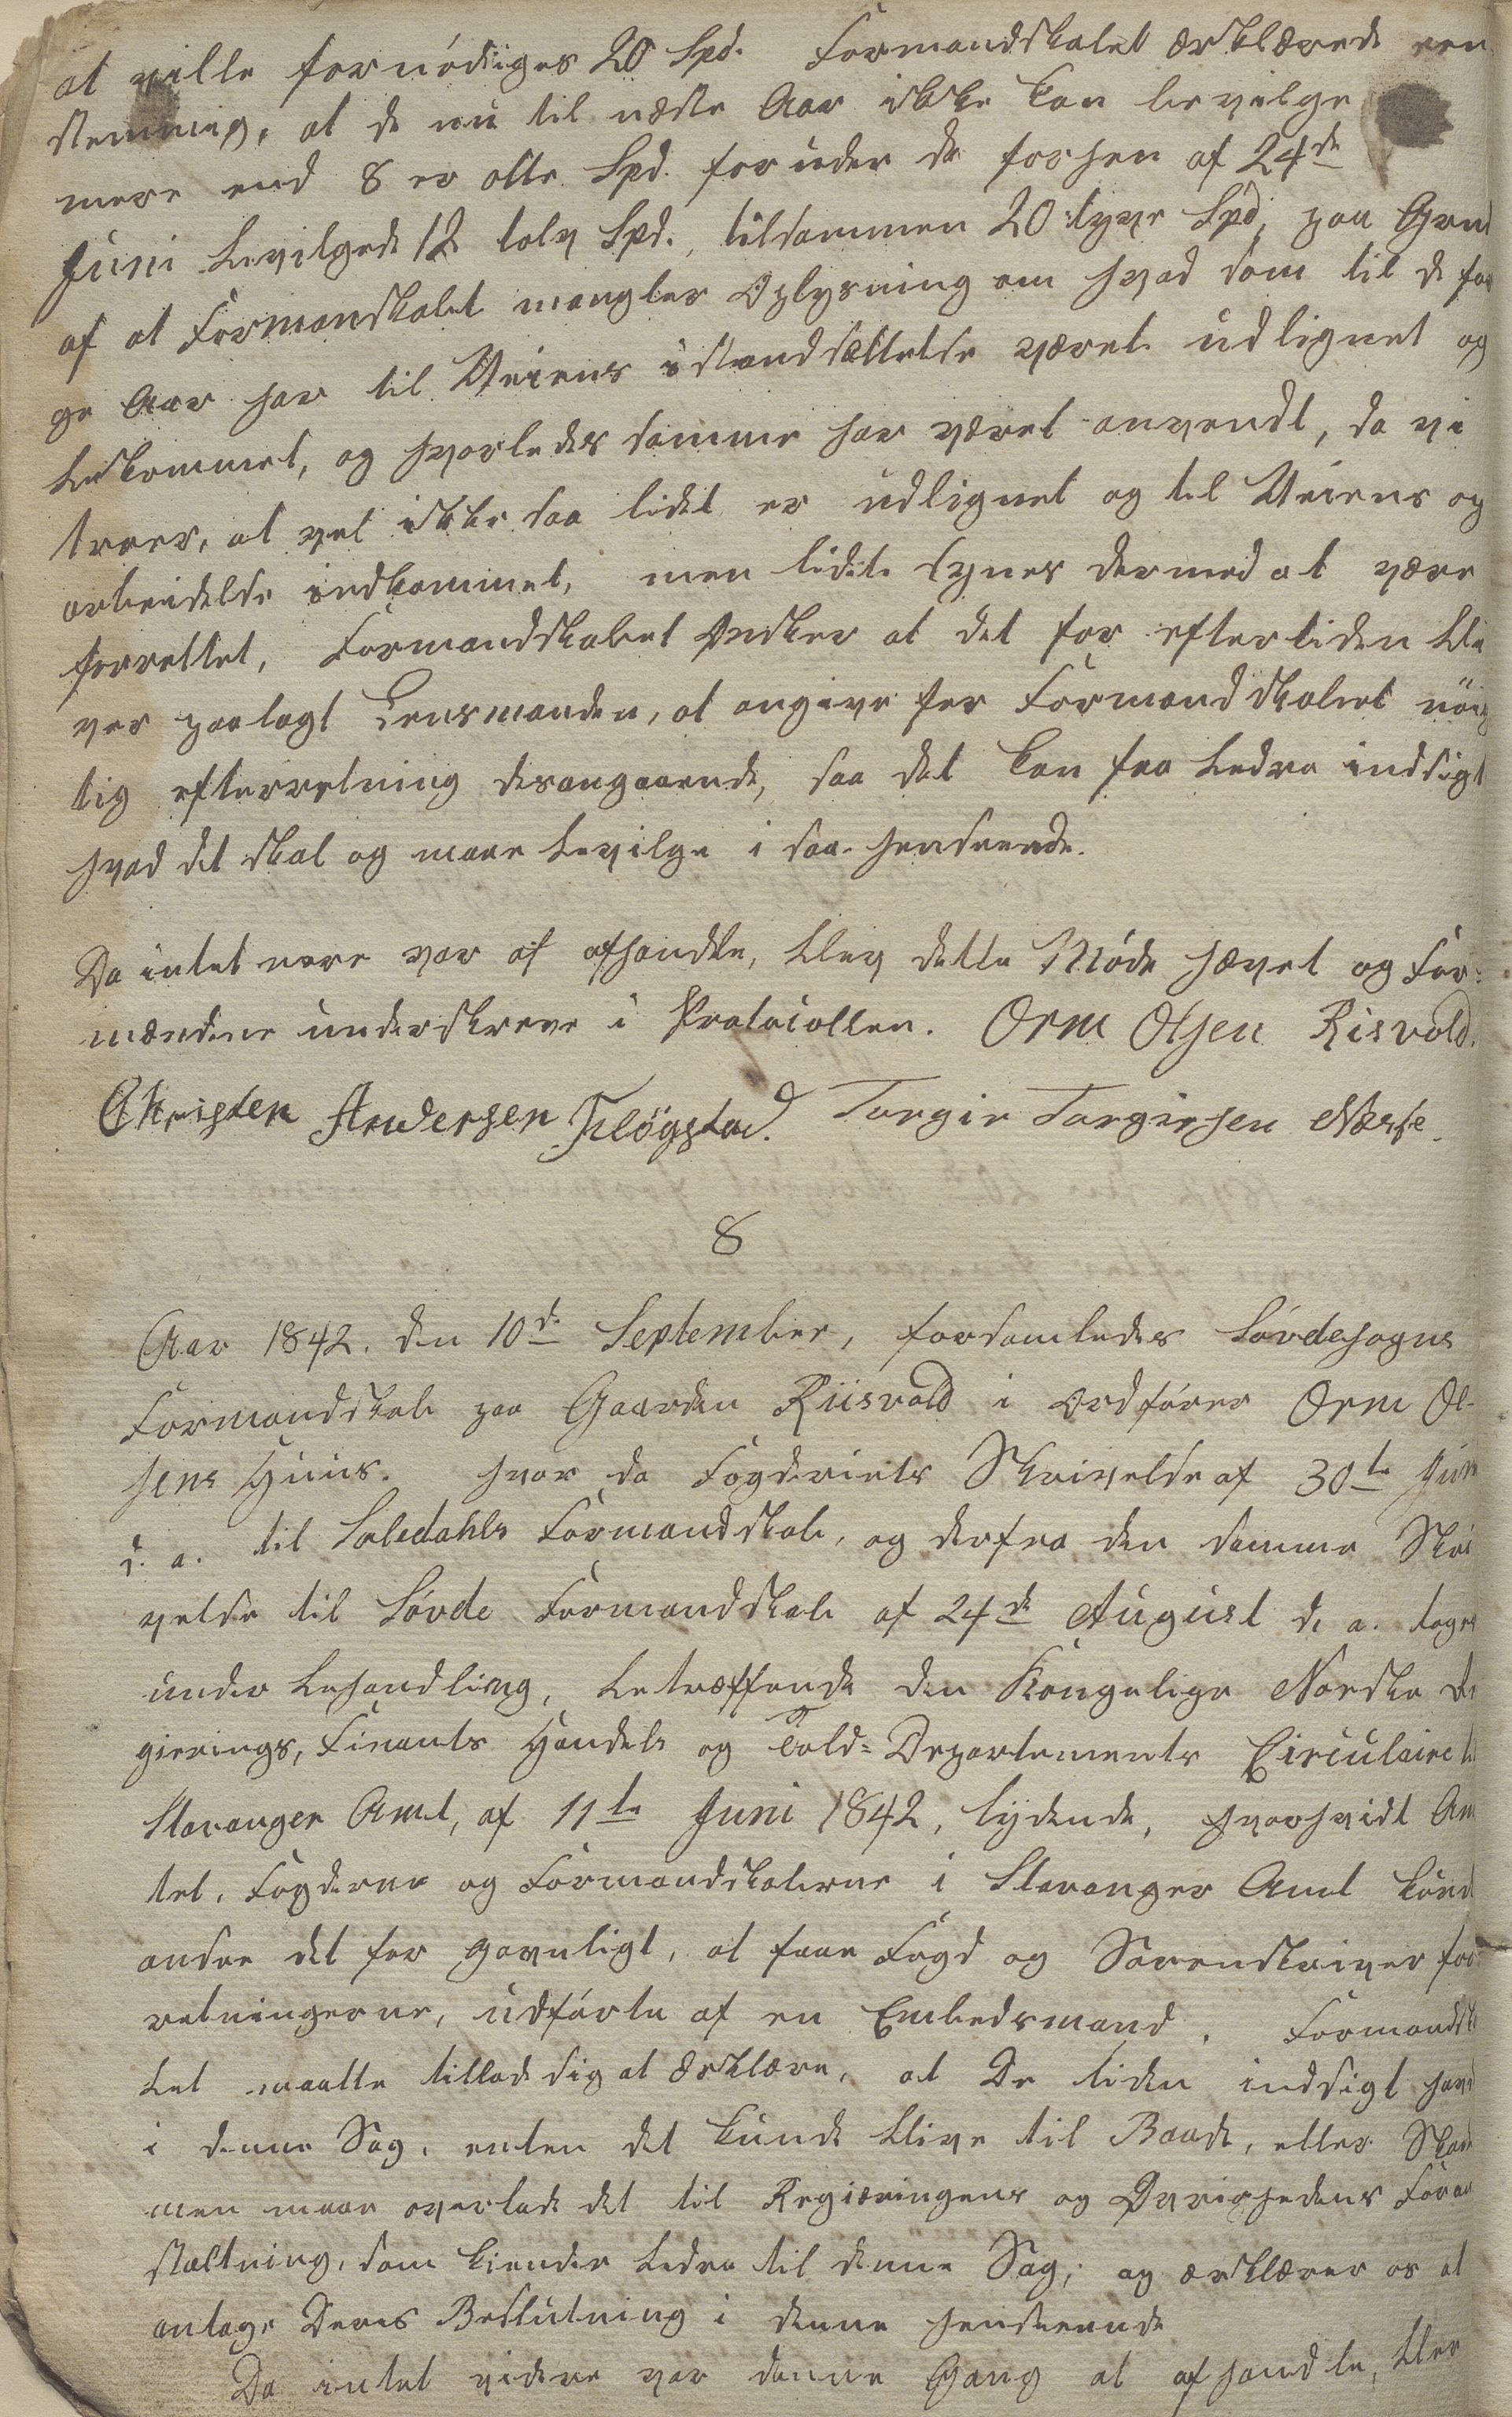 at ville fornödiges 20 Spd. Formandskabet ærklærede een
stemmig, at de nu til næste Aar ikke kan bevilge
mere end 8 er otte Spd. foruden de forhen af 24de
Juni bevilgede 12 tolv Spd., tilsammen 20 tyve Spd, paa Grund
af at Formanskabet mangler Oplysning om hvad som til de for
ge Aar har til Veiens istandsættelse været udlignet og
bekommet, og hvorledes samme har været anvendt, da vi
troer, at vel ikke saa lidet er udlignet og til Veiens og
arbeidelse indkommet, men lidet synes dermed at være
forrettet, Formandskabet Ønsker at det for eftertiden bli
ver paalagt Lensmanden, at angive for Formandskabet nöig
tig efterretning desangaaende, saa det kan faa bedre indsigt
hvad det skal og maae bevilge i saa henseende.
Da intet mere var af afhandle, blev dette Möde hævet og For-
mændene underskreve i Protocollen. Orm Olsen Risvold.
Christen Andersen Fløgstad. Torgir Torgirsen Næsse.
8
Aar 1842. den 10de September, forsamledes Sövdesogns
Formandskab paa Gaarden Riisvold i Ordförer Orm Ol-
sens Huus. hvor da Fogderiets Skrivelse af 30te Juni
d. a. til Suledahls Formandskab, og derfra den samme Skri
velse til Sövde Formandskab af 24de August d. a. toges
under behandling, betræffende den Kongelige Norske Re
gierings, Finants Handels og Told-Departements Circulaire til
Stavanger Amt, af 11te Juni 1842, lydende, hvorhvidt Am
tet, Fogderne og Formandskaberne i Stavanger Amt kund
ansee det for gavnligt, at faae Fogd og Sorenskriver for
retningerne, udförte af en Embedsmand. Formandsk
bet maatte tillade sig at Ærklære, at De liden indsigt havd
i denne Sag, enten det kunde blive til Baade, eller Skade
men maae overlade det til Regiæringens og Øvrighedens Foran
staltning, som kiender bedre til denne Sag, og ærklærer os at
antage Deres Beslutning i denne henseende
Da intet videre var denne Gang at afhandle, blev